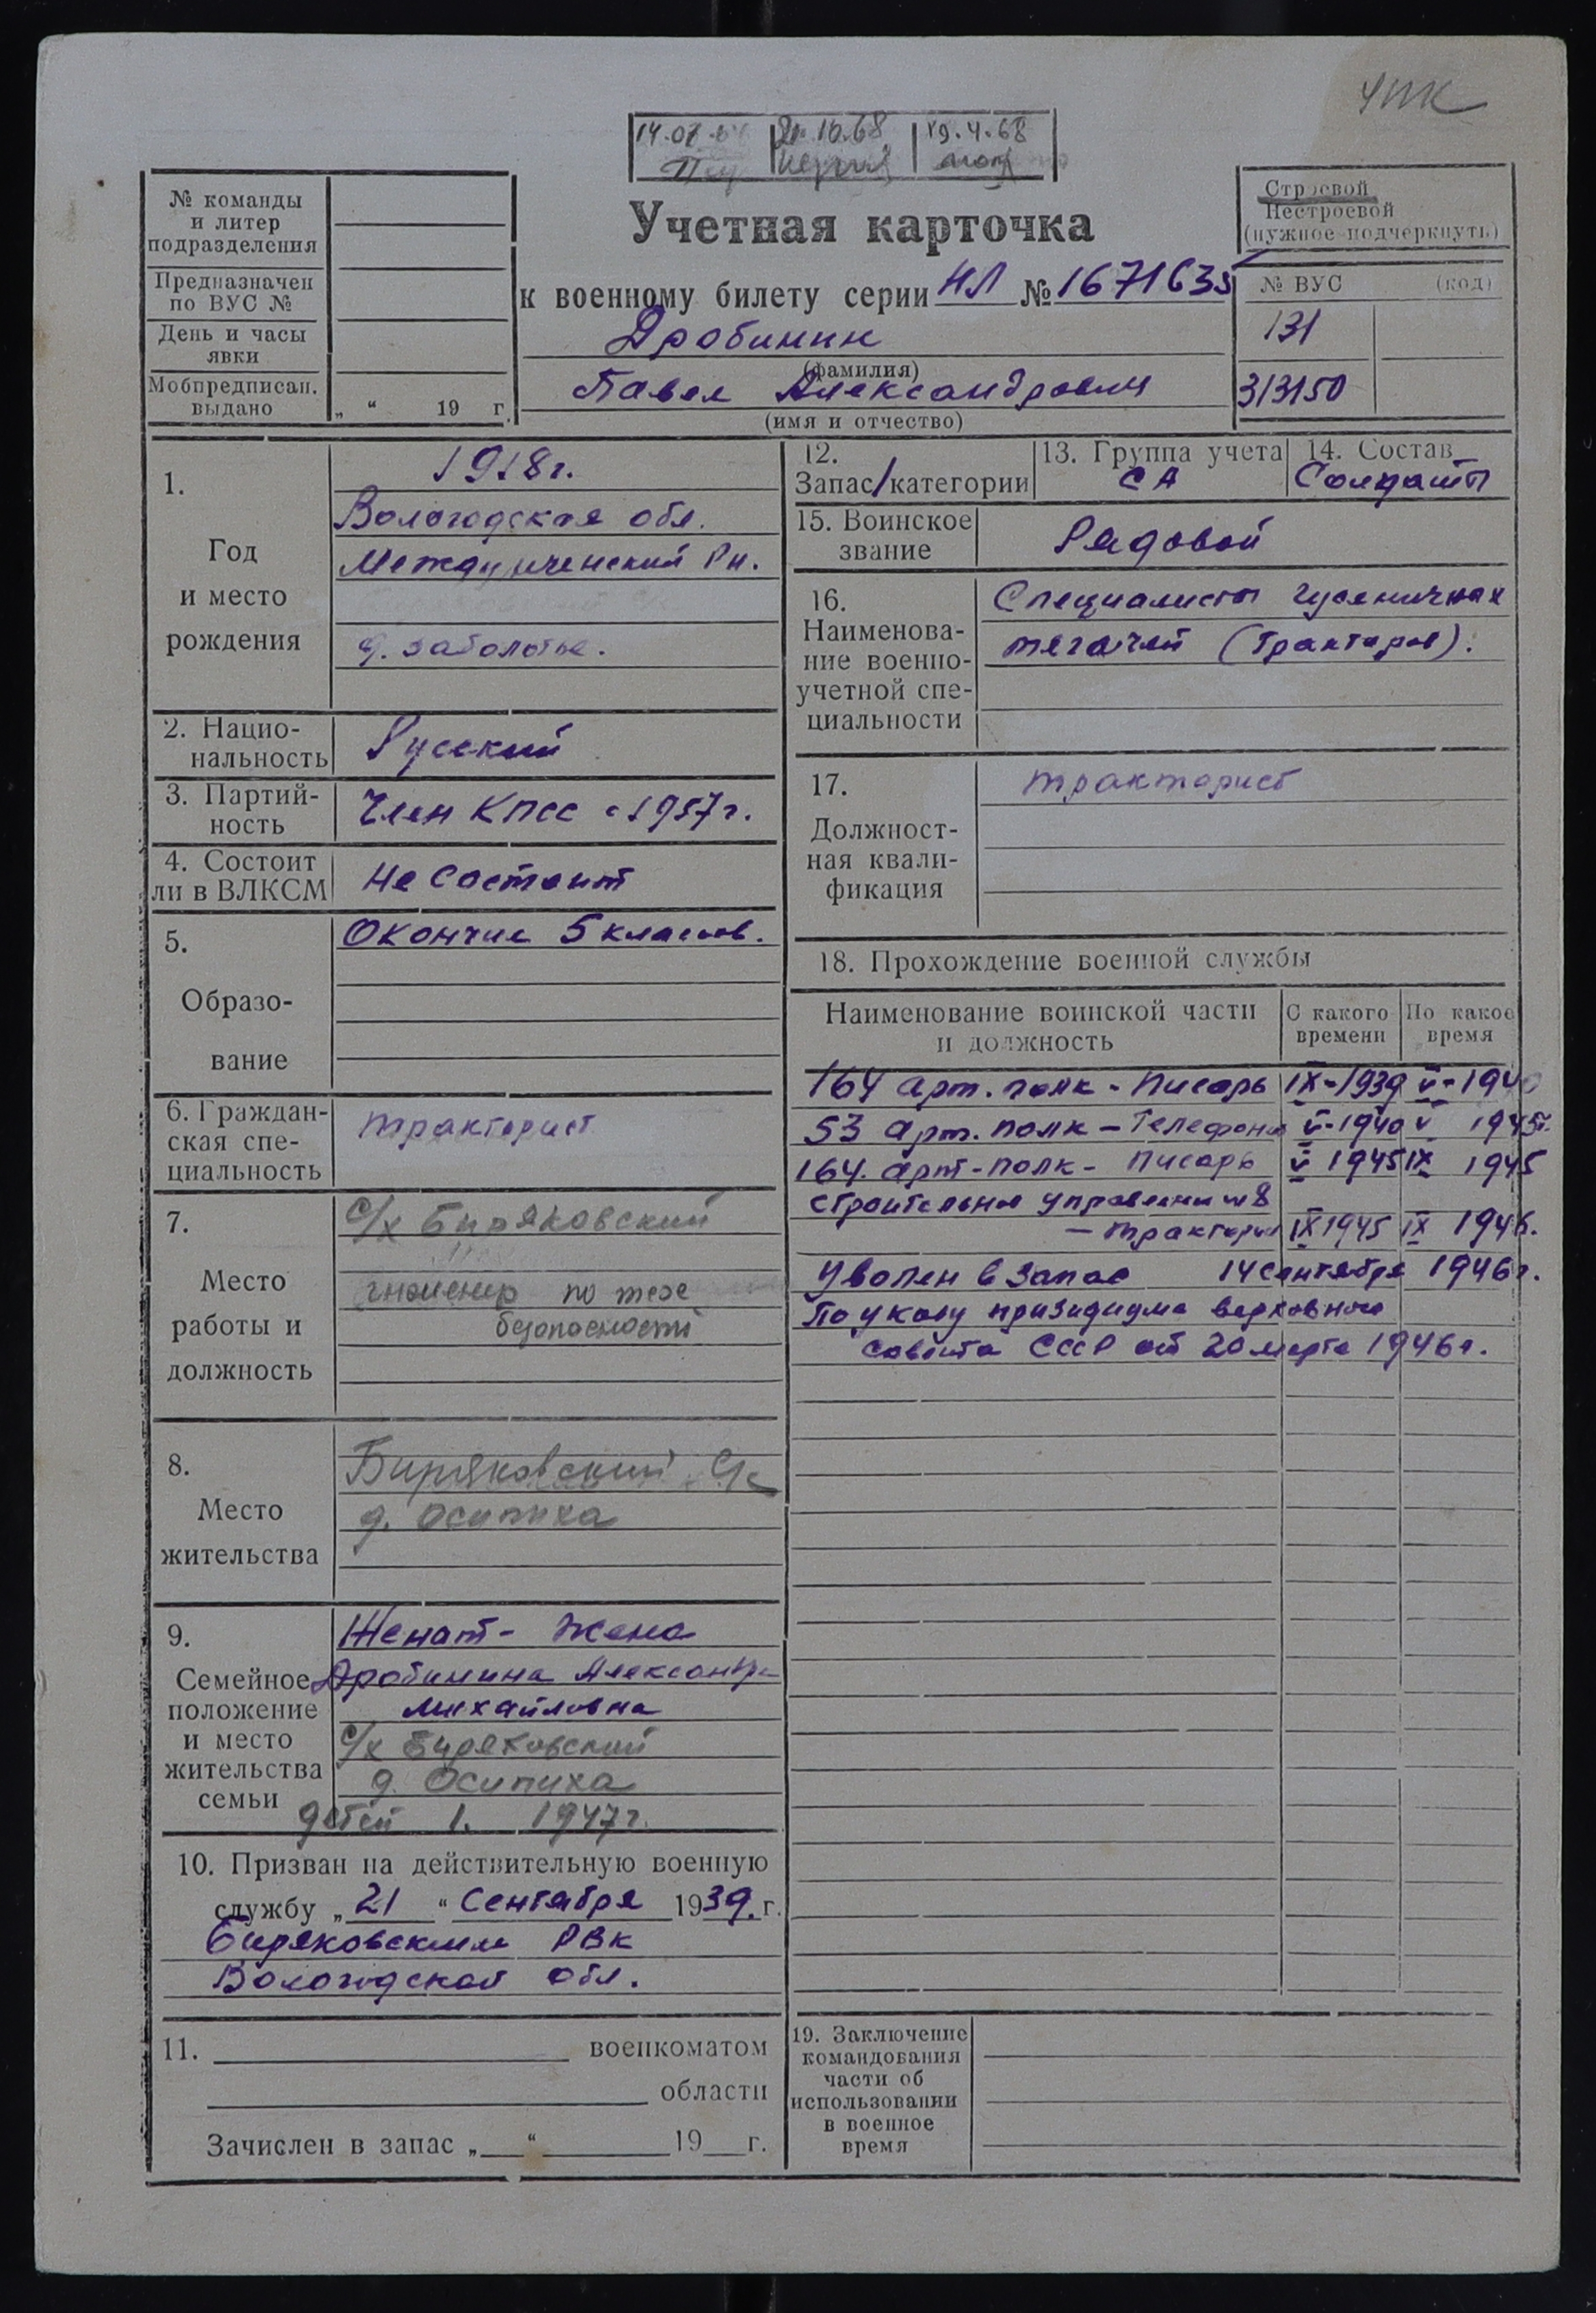 ЧПК
14.07
21.10.68
19.4.68
№ команды
и литер
подразделения
Предназначен
по ВУС №
День и часы
явки
Мобпредписан.
выдано „ “ 19 г.
Учетная карточка
к военному билету серии НЛ № 1671635
Дробинин
(фамилия)
Павел Александрович
(имя и отчество)
Строевой
Нестроевой
(нужное подчеркнуть)
№ ВУС (код)
131
313150
1.
Год
и место
рождения
1918 г.
Вологодская обл.
Междуреченский Рн.
д. заболотье.
2. Нацио-
нальность
Русский
3. Партий-
ность
Член КПСС с 1957 г.
4. Состоит
ли в ВЛКСМ
Не состоит
5.
Образо-
вание
Окончил 5 классов.
6. Граждан-
ская спе-
циальность
тракторист
7.
Место
работы и
должность
с/х Биряковский
инженер по техе
безопасности
8.
Место
жительства
Биряковский с/с
д. Осипиха
9.
Семейное
положение
и место
жительства
семьи
Женат - жена
Дробинина Александра
Михайловна
с/х Биряковский
д. Осипиха
детей 1. 1947 г.
10. Призван на действительную военную
службу „ 21 “ Сентября 1939. г.
Биряковским РВК
Вологодской обл.
11. военкоматом
области
Зачислен в запас „ “ 19 г.
12.
Запас / категории
13. Группа учета
СА
14. Состав
Солдаты
15. Воинское
звание
Рядовой
16.
Наименова-
ние военно-
учетной спе-
циальности
Специалисты гусеничных
тягачей (Тракторов).
17.
Должност-
ная квали-
фикация
тракторист
18. Прохождение военной службы
Наименование воинской части
и должность
С какого
времени
По какое
время
164 арт. полк - писарь IX-1939 V-1940
53 арт. полк - Телефонист V-1940 V 1945 г.
164. арт-полк - писарь V 1945 IX 1945
Строительное управление № 8
- тракторист IX 1945 IX 1946.
Уволен в запас 14 сентября 1946 г.
По указу призидиума верховного
совета СССР от 20 марта 1946 г.
19. Заключение
командования
части об
использовании
в военное
время